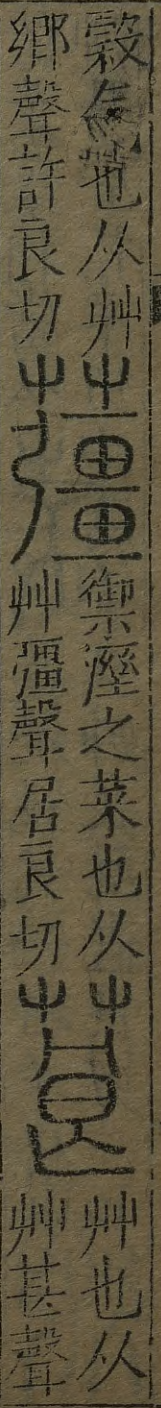 穀气也从艸
鄉聲許良切
䕬
御溼之菜也从
艸彊聲居良切
葚
艸也从
艸甚聲